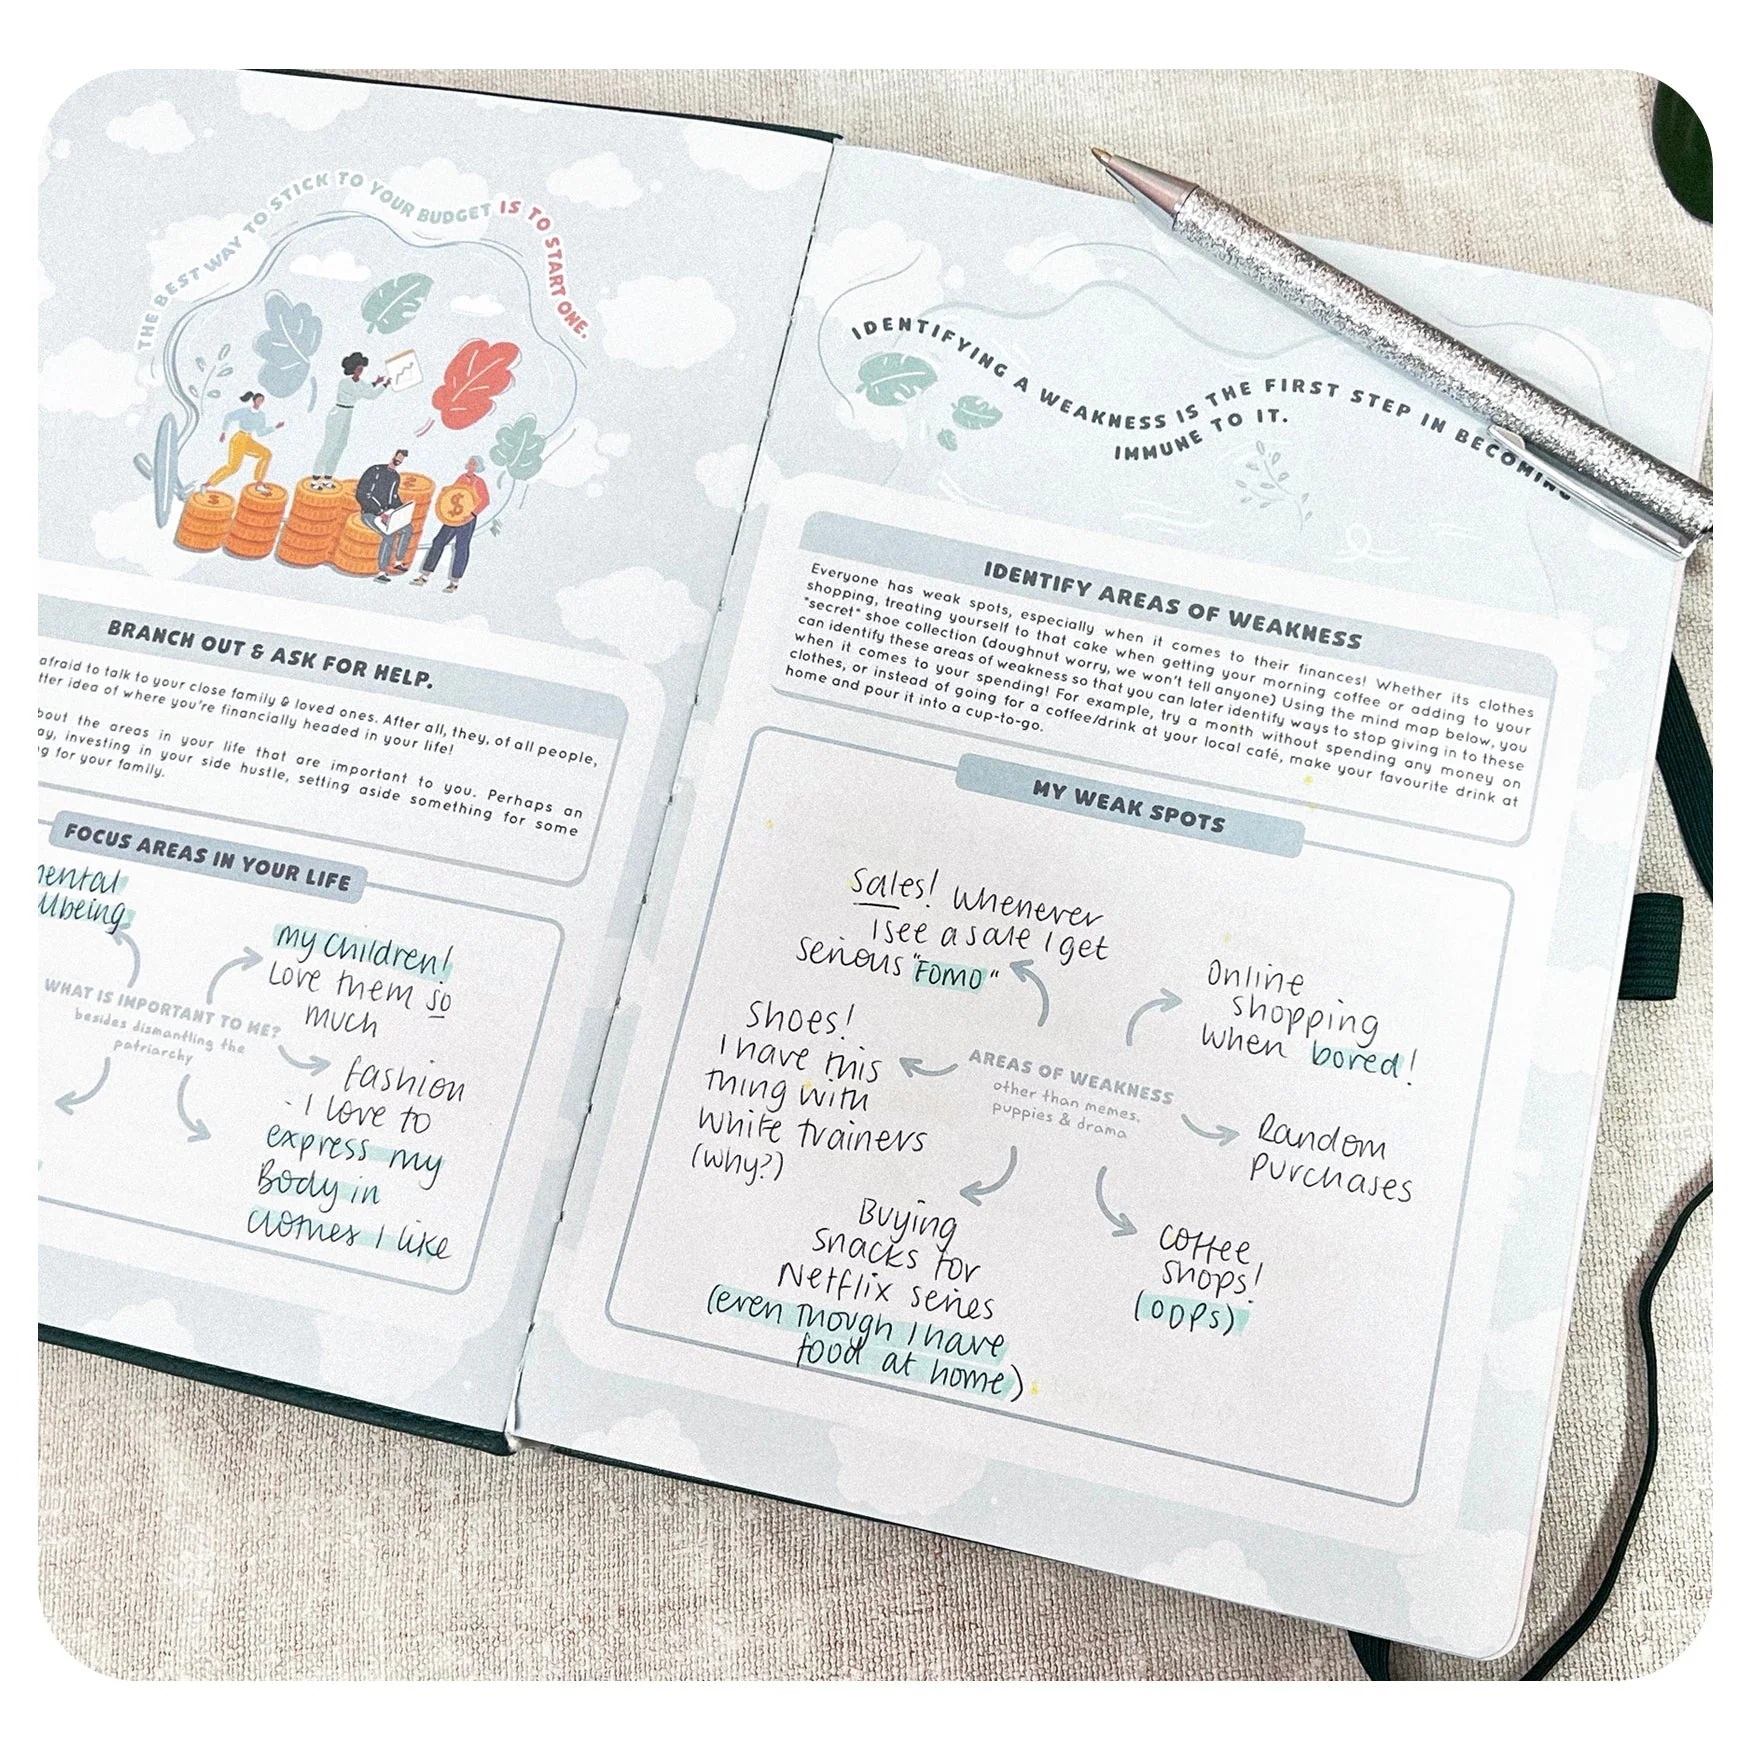 THE BEST WAY TO STICK TO YOUR BUDGET IS TO START ONE.
BRANCH OUT & ASK FOR HELP.
afraid to talk to your close family & loved ones. After all, they, of all people,
tter idea of where you're financially headed in your life!
bout the areas in your life that are important to you. Perhaps an
ay, investing in your side hustle, setting aside something for some
g for your family.
FOCUS AREAS IN YOUR LIFE
mental
llbeing
my children!
Love them so
much
WHAT IS IMPORTANT TO ME?
besides dismantling the
patriarchy
fashion
- I love to
express my
Body in
clothes I like
IDENTIFYING A WEAKNESS IS THE FIRST STEP IN BECOMING
IMMUNE TO IT.
IDENTIFY AREAS OF WEAKNESS
Everyone has weak spots, especially when it comes to their finances! Whether its clothes
shopping, treating yourself to that cake when getting your morning coffee or adding to your
*secret* shoe collection (doughnut worry, we won't tell anyone) Using the mind map below, you
can identify these areas of weakness so that you can later identify ways to stop giving in to these
when it comes to your spending! For example, try a month without spending any money on
clothes, or instead of going for a coffee/drink at your local café, make your favourite drink at
home and pour it into a cup-to-go.
MY WEAK SPOTS
Sales! Whenever
I see a sale I get
serious "FOMO"
Online
shopping
when bored!
Shoes!
I have this
thing with
white trainers
(why?)
AREAS OF WEAKNESS
other than memes,
puppies & drama
Random
purchases
Buying
snacks for
Netflix series
(even though I have
food at home)
coffee
shops!
(OOPs)